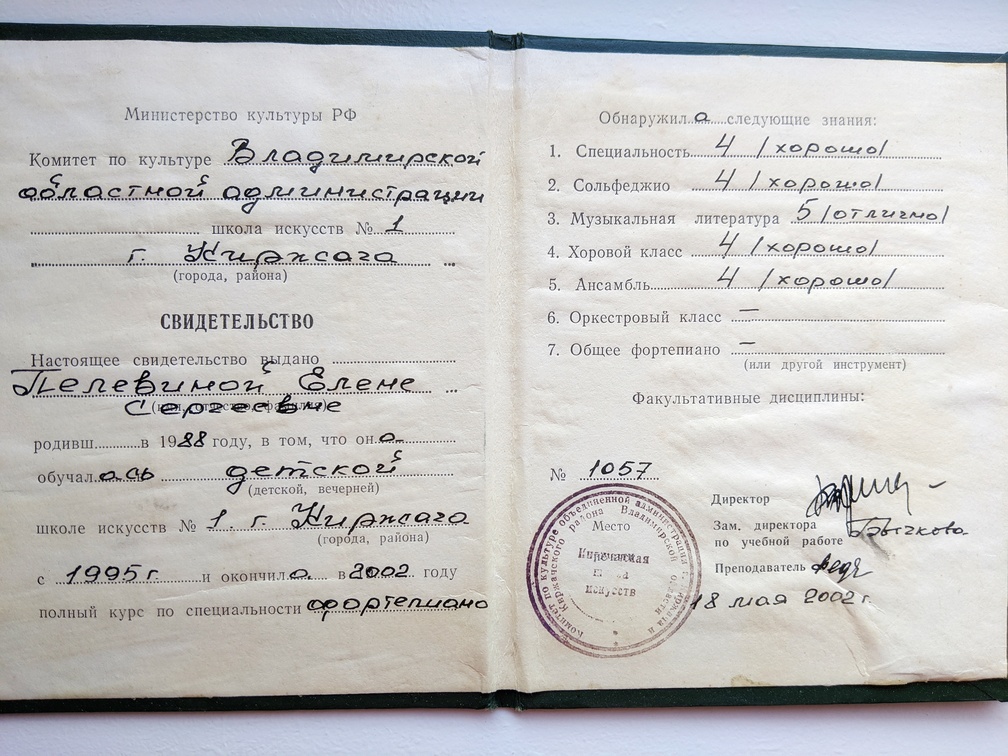 Министерство культуры РФ
Комитет по культуре Владимирской
областной администрации
школа искусств № 1
г. Киржача
(города, района)
СВИДЕТЕЛЬСТВО
Настоящее свидетельство выдано
Пелевиной Елене
Сергеевне
родивш в 1988 году, в том, что она
обучалась детской
(детской, вечерней)
школе искусств № 1 г. Киржача
(города, района)
с 1995 г. и окончила в 2002 году
полный курс по специальности фортепиано
Обнаружила следующие знания:
1. Специальность 4 /хорошо/
2. Сольфеджио 4 /хорошо/
3. Музыкальная литература 5 /отлично/
4. Хоровой класс 4 /хорошо/
5. Ансамбль 4 /хорошо/
6. Оркестровый класс —
7. Общее фортепиано —
(или другой инструмент)
Факультативные дисциплины:
№ 1057
Комитет по культуре объединенной администрации г. Киржача и
Киржачского района Владимирской области
Место
Киржачская
искусств
Директор
Зам. директора
по учебной работе
Преподаватель
18 мая 2002 г.